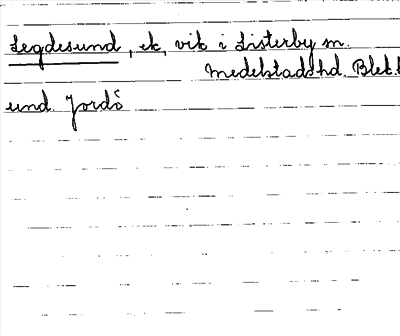 Legdesund, ek, vik i Listerby sn.
Medelstads hd. Blek.
und. Jordö